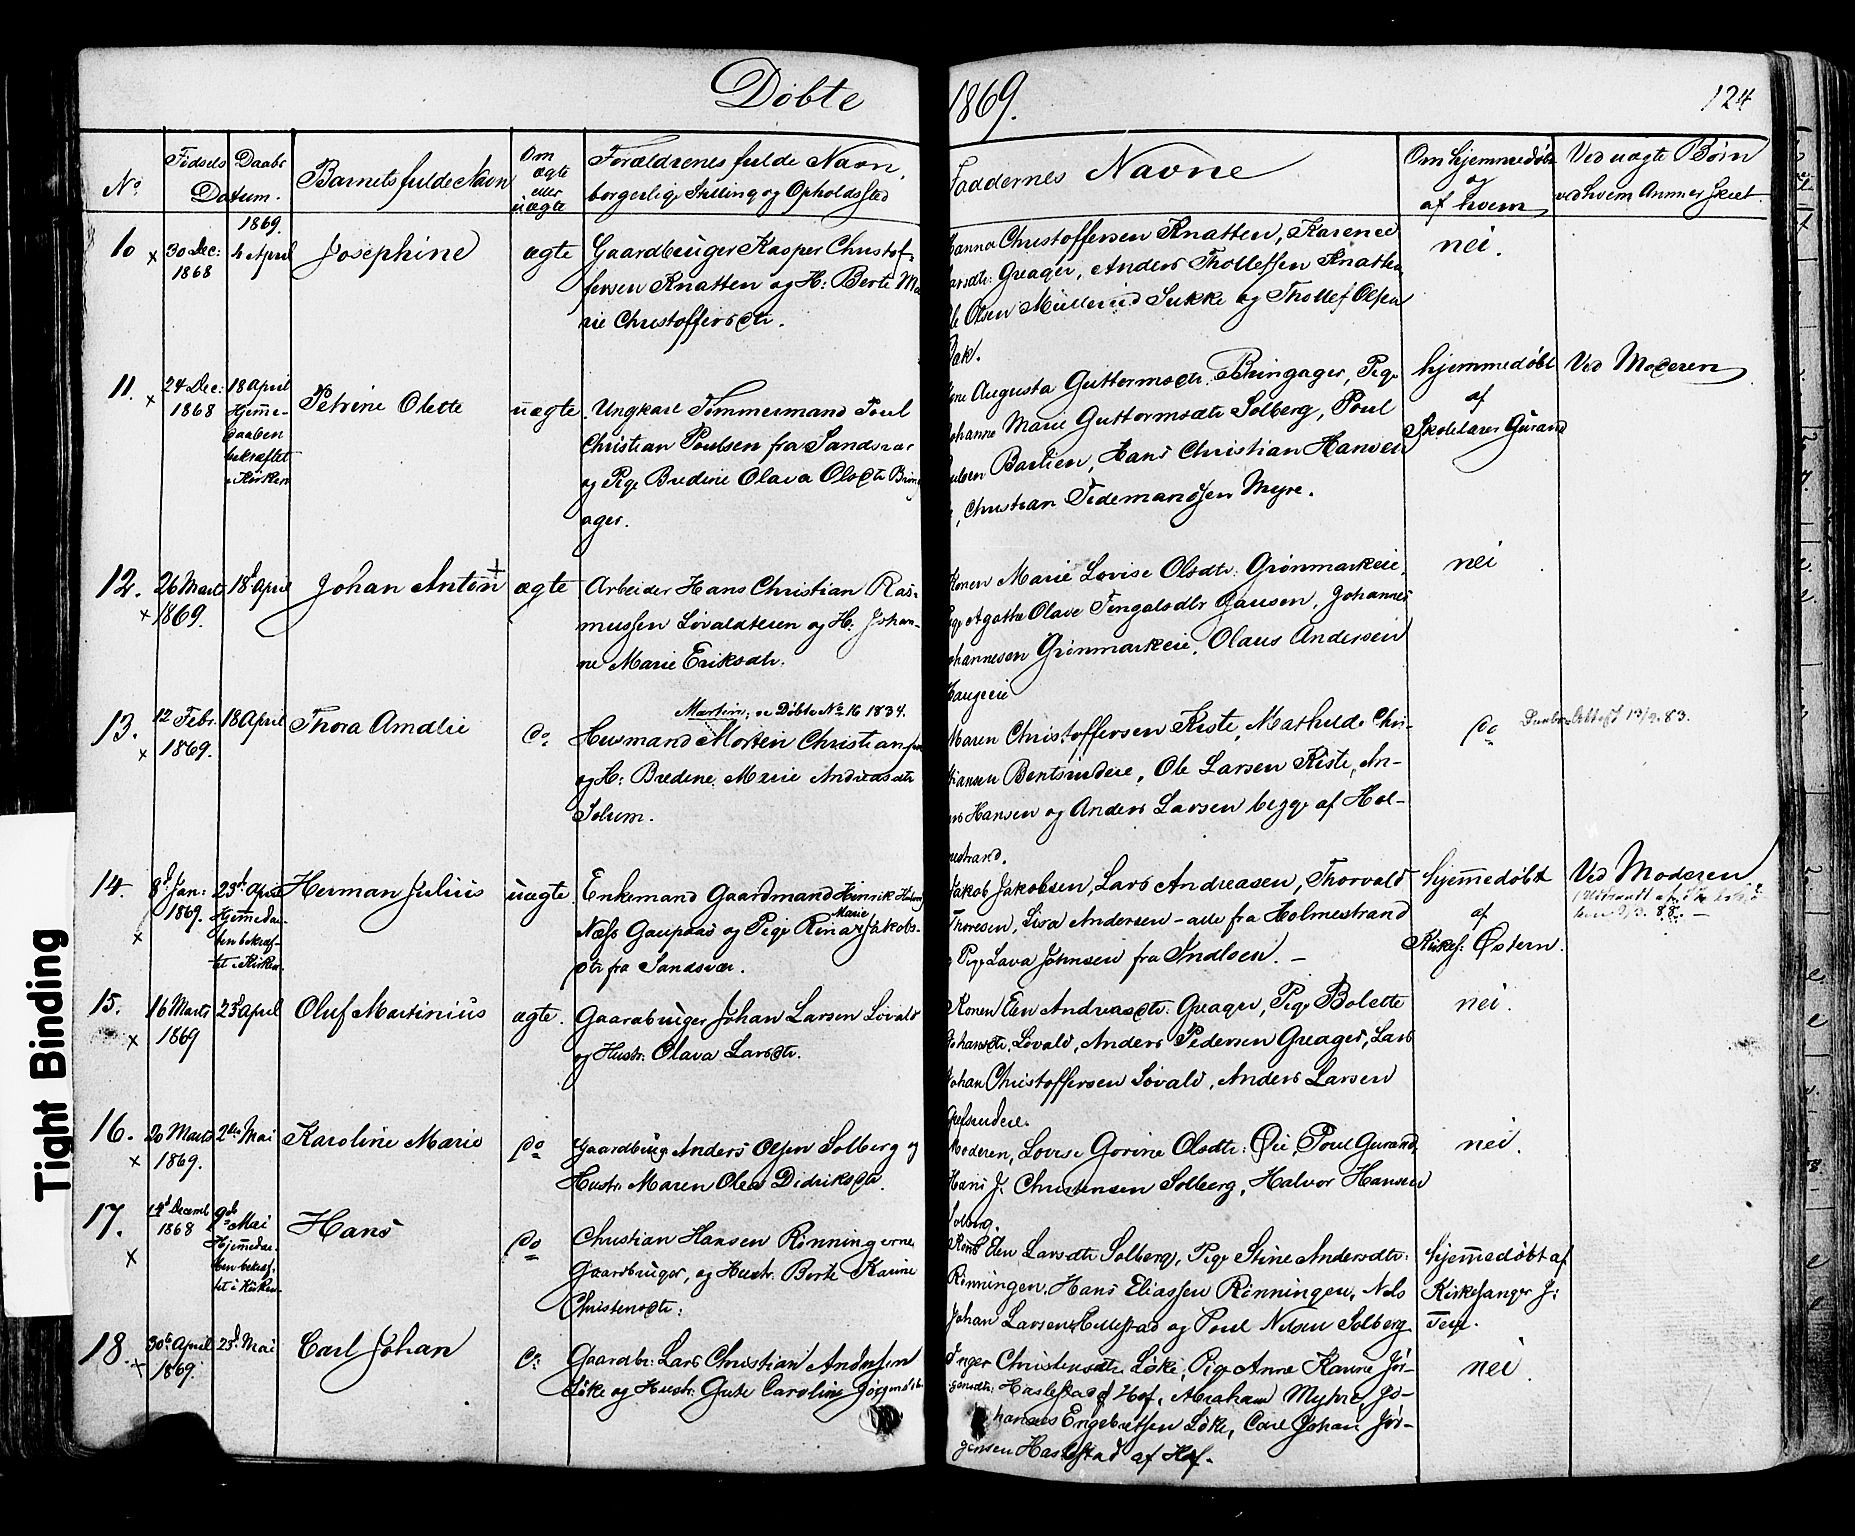 Døbte 1869. 124
No
Fødsels Daabs
Datum.
Barnets fulde Navn
Om
ægte
eller
uægte
Forældrenes fulde Navn,
borgerlige Stilling og Opholdssted
Faddernes Navne
Om hjemmedøbt
og
af hvem
Ved uægte Børn
ved hvem Anmeldt
1869.
10 × 30 Dec: 1868
4 April
Josephine
ægte
Gaardbruger Kasper Christof-
fersen Knatten og H: Berte Ma
rie Christoffersdtr.
Hanna Christoffersen Knatten, Karence
Larsdtr: Greager, Anders Thollefsen Knatten
Ole Olsen Møllerud Sukke og Thollef Olsen
Bak.
nei.
11. × 24 Dec: 1868
18 April
Hjemme-
daaben
bekræftet
i Kirken
Petrine Olette
uægte
Ungkarl Tømmermand Poul
Christian Poulsen fra Sandsvær
og Pige Bredine Olava Olsdtr Bring
ager.
Augusta Guttormsdtr. Bringager, Pige
Johanne Marie Guttormsdtr Solberg, Poul
Poulsen Barlien, Hans Christian Hansen
Christian Tidemandsen Myre.
hjemmedøbt
af
Skolelærer Gurand
Ved Moderen
12. × 26 Marts 1869.
18d April
Johan Anton +
ægte
Arbeider Hans Christian Ras-
mussen Løvaldteien og H: Johan-
ne Marie Eriksdtr.
Konen Marie Lovise Olsdtr: Grønmarkeie,
Pige Agathe Olave Fingalsdtr Gausen, Johannes
Johannesen Grønmarkeie, Olaus Andersen
Haugeeie
nei
13. × 12 Febr. 1869.
18 April
Thora Amalie
Do
Martin, se Døbte No 16 1834.
Husmand Morten Christiansen
og H: Bredine Marie Andreasdtr
Solum.
Maren Christoffersen Kiste, Mathilde Chri-
stiansen Bentsrudeie, Ole Larsen Kiste, An-
ders Hansen og Anders Larsen begge af Hol-
mestrand.
Do
13/9. 83.
14. × 8d Jan: 1869.
23d April
Hjemmedaa-
ben bekræf-
tet i Kirken
Herman Julius
uægte
Enkemand Gaardmand Hinrik
Næss Gaupaas og Pige Rina Marie Jakobs-
dtr fra Sandsvær.
Jakob Jakobsen, Lars Andreasen, Thorvald
Thoresen, Lisa Andersen – alle fra Holmestrand
og Pige Lava Johnsen fra Indloen. –
hjemmedøbt
af
Kirkes: Østern.
Ved Moderen
15. × 16 Marts 1869
23d April
Oluf Martinius
ægte.
Gaardbruger Johan Larsen Løvald
og Hustr: Olava Larsdtr.
Konen Elen Andreasdtr: Greager, Pige Bolette
Johansdtr. Løvald, Anders Pedersen Greager, Lars
Johan Christoffersen Løvald, Anders Larsen
Grefsrudeie.
nei.
16. × 20 Marts 1869.
2den Mai
Karoline Marie
Do
Gaardbrug Anders Olsen Solberg og
Hustr. Maren Olea Didriksdtr.
Moderen, Lovise Gorine Olsdtr: Øie, Poul Gurand,
Hans J. Christensen Solberg, Halvor Hansen
Solberg.
nei.
17. × 14d Decemb. 1868
9de Mai
Hjemmedaa-
ben bekræf-
tet i Kirken
Hans
Do
Christian Hansen Rønningerne
Gaardbruger, og Hustr. Berte Karine
Christensdtr:
Kone Elen Larsdtr Solberg, Pige Stine Andersdtr:
Rønningen, Hans Eliassen Rønningen, Nels
Johan Larsen Hillestad og Poul Nilsen Solberg
hjemmedøbt af
Kirkesanger J:
Teye.
18. × 30te April 1869.
23d Mai
Carl Johan
Do
Gaardbr: Lars Christian Andersen
Løke og Hustr. Gute Caroline Jørgensdtr
Inger Christensdtr Løke, Pige Anne Karine Jør-
gensdtr: Haslestad af Hof, Abraham Myhre, Jo-
hannes Engebretsen Løke, Carl Johan Jør-
gensen Haslestad af Hof.
nei.
Tight Binding